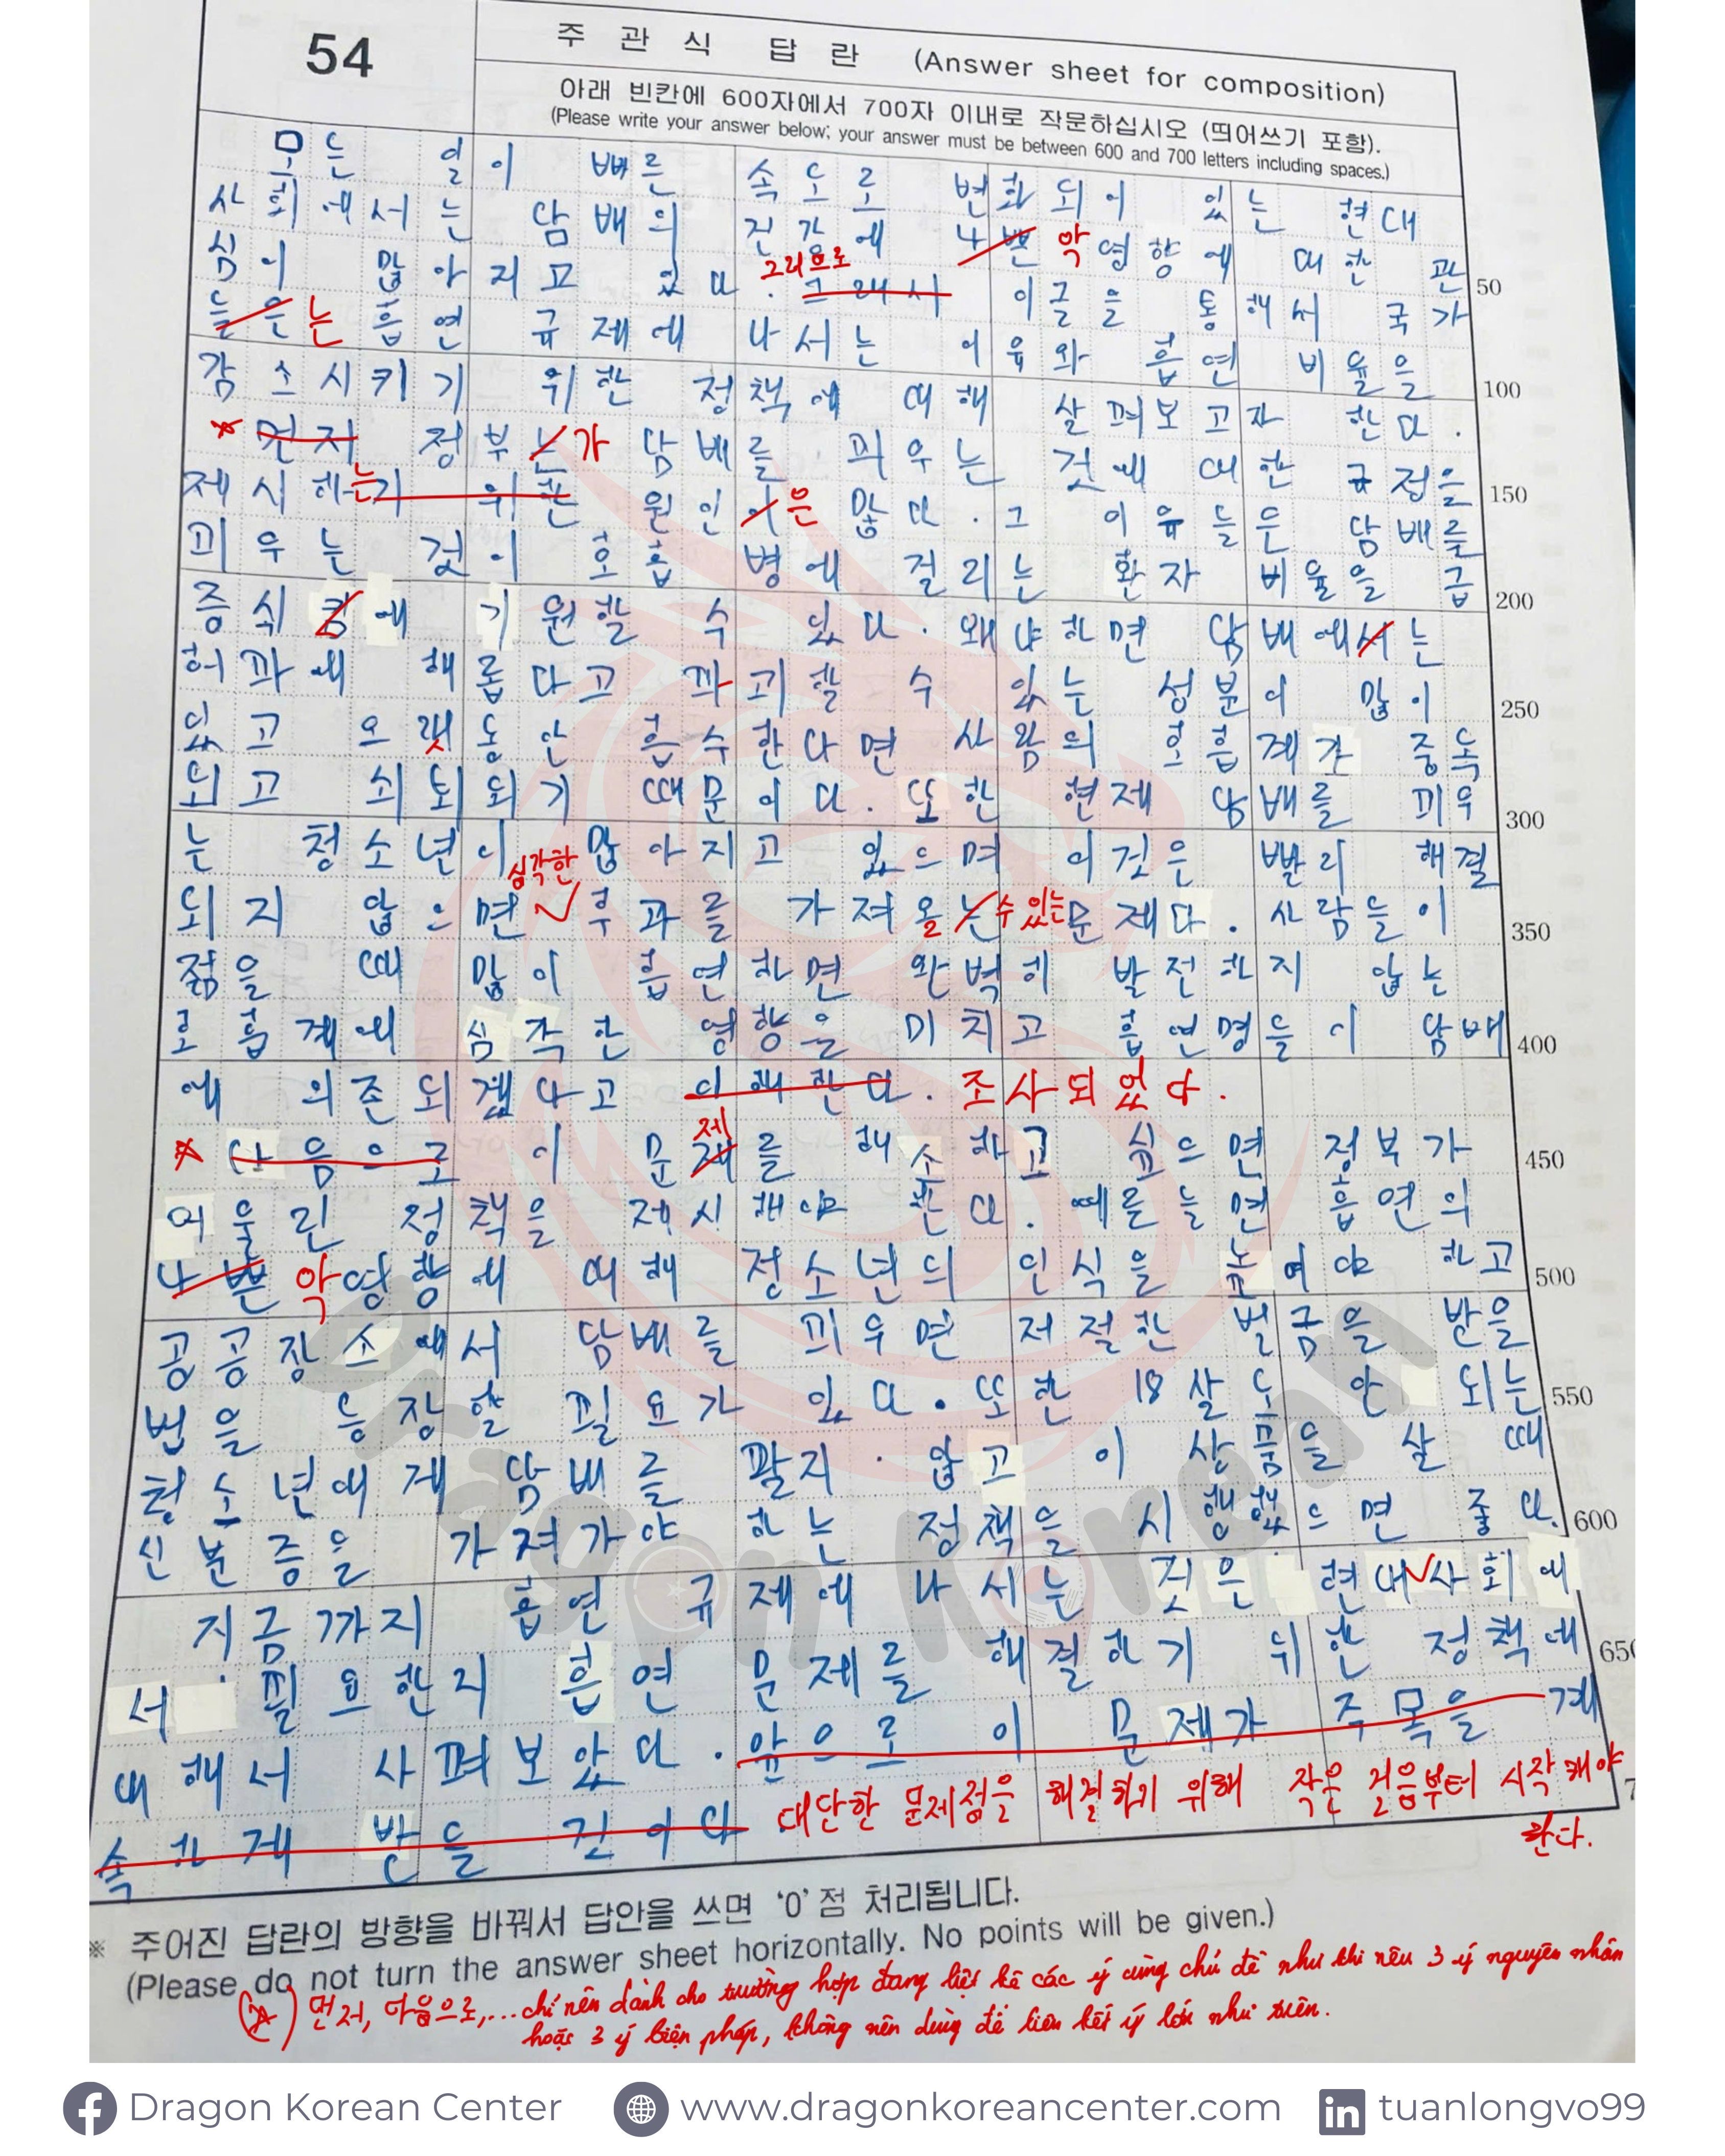 54
주 관 식 답 란 (Answer sheet for composition)
아래 빈칸에 600자에서 700자 이내로 작문하십시오 (띄어쓰기 포함).
(Please write your answer below; your answer must be between 600 and 700 letters including spaces.)
모든 일이 빠른 속도로 변화되어 있는 현대
사회에서는 담배의 진가에 나쁜 악영향에 대한 관
50
그러므로
심이 많아지고 있다. 그래서 이글을 통해서 국가
들은 는 흡연 규제에 나서는 이유와 흡연 비율을
100
감소시키기 위한 정책에 대해 살펴보고자 한다.
먼저 정부는 가 담배를 피우는 것에 대한 규정을
150
제시하는기 위한 원인이 은 많다. 그 이유들은 담배를
피우는 것이 호흡 병에 걸리는 환자 비율을 급
200
증식킴에 기원할 수 있다. 왜냐하면 담배에서는
허파에 해롭다고 파괴할 수 있는 성분이 많이
250
있고 오랫동안 흡수한다면 사람의 호흡계가 중독
되고 쇠퇴되기 때문이다. 또한 현제 담배를 피우
300
는 청소년이 많아지고 있으며 이것은 빨리 해결
심각한
되지 않으면 부과를 가져올는 수 있는 문제다. 사람들이
350
젊을 때 많이 흡연하면 완벽히 발전하지 않는
로흡계에 심각한 영향을 미치고 흡연명들이 담배
400
에 의존되겠다고 이해한다. 조사되었다.
제
다음으로 이 문재를 해소하고 싶으면 정부가
450
어울린 정책을 제시해야 한다. 예를들면 흡연의
나쁜 악영향에 대해 청소년의 인식을 높여야 하고
500
공공장소에서 담배를 피우면 저절한 벌금을 받을
번을 등장할 필요가 있다. 또한 18살도 안 되는
550
청소년에게 담배를 팔지 않고 이 상품을 살 때
신분증을 가져가야 하는 정책을 시행했으면 좋다.
600
지금까지 흡연 규제에 나서는 것은 현대사회에
서 필요한리 흡연 문제를 해결하기 위한 정책에
650
대해서 사펴보았다. 앞으로 이 문제가 주목을 계
속하게 받들 것이다
대단한 문제점을 해결하기 위해 작은 걸음부터 시작해야
한다.
※ 주어진 답란의 방향을 바꿔서 답안을 쓰면 '0'점 처리됩니다.
(Please do not turn the answer sheet horizontally. No points will be given.)
먼저, 다음으로,... chỉ nên dành cho trường hợp đang liệt kê các ý cùng chủ đề như khi nêu 3 ý nguyên nhân
hoặc 3 ý biện pháp, không nên dùng để liên kết ý lớn như trên.
Dragon Korean
Dragon Korean Center
www.dragonkoreancenter.com
tuanlongvo99